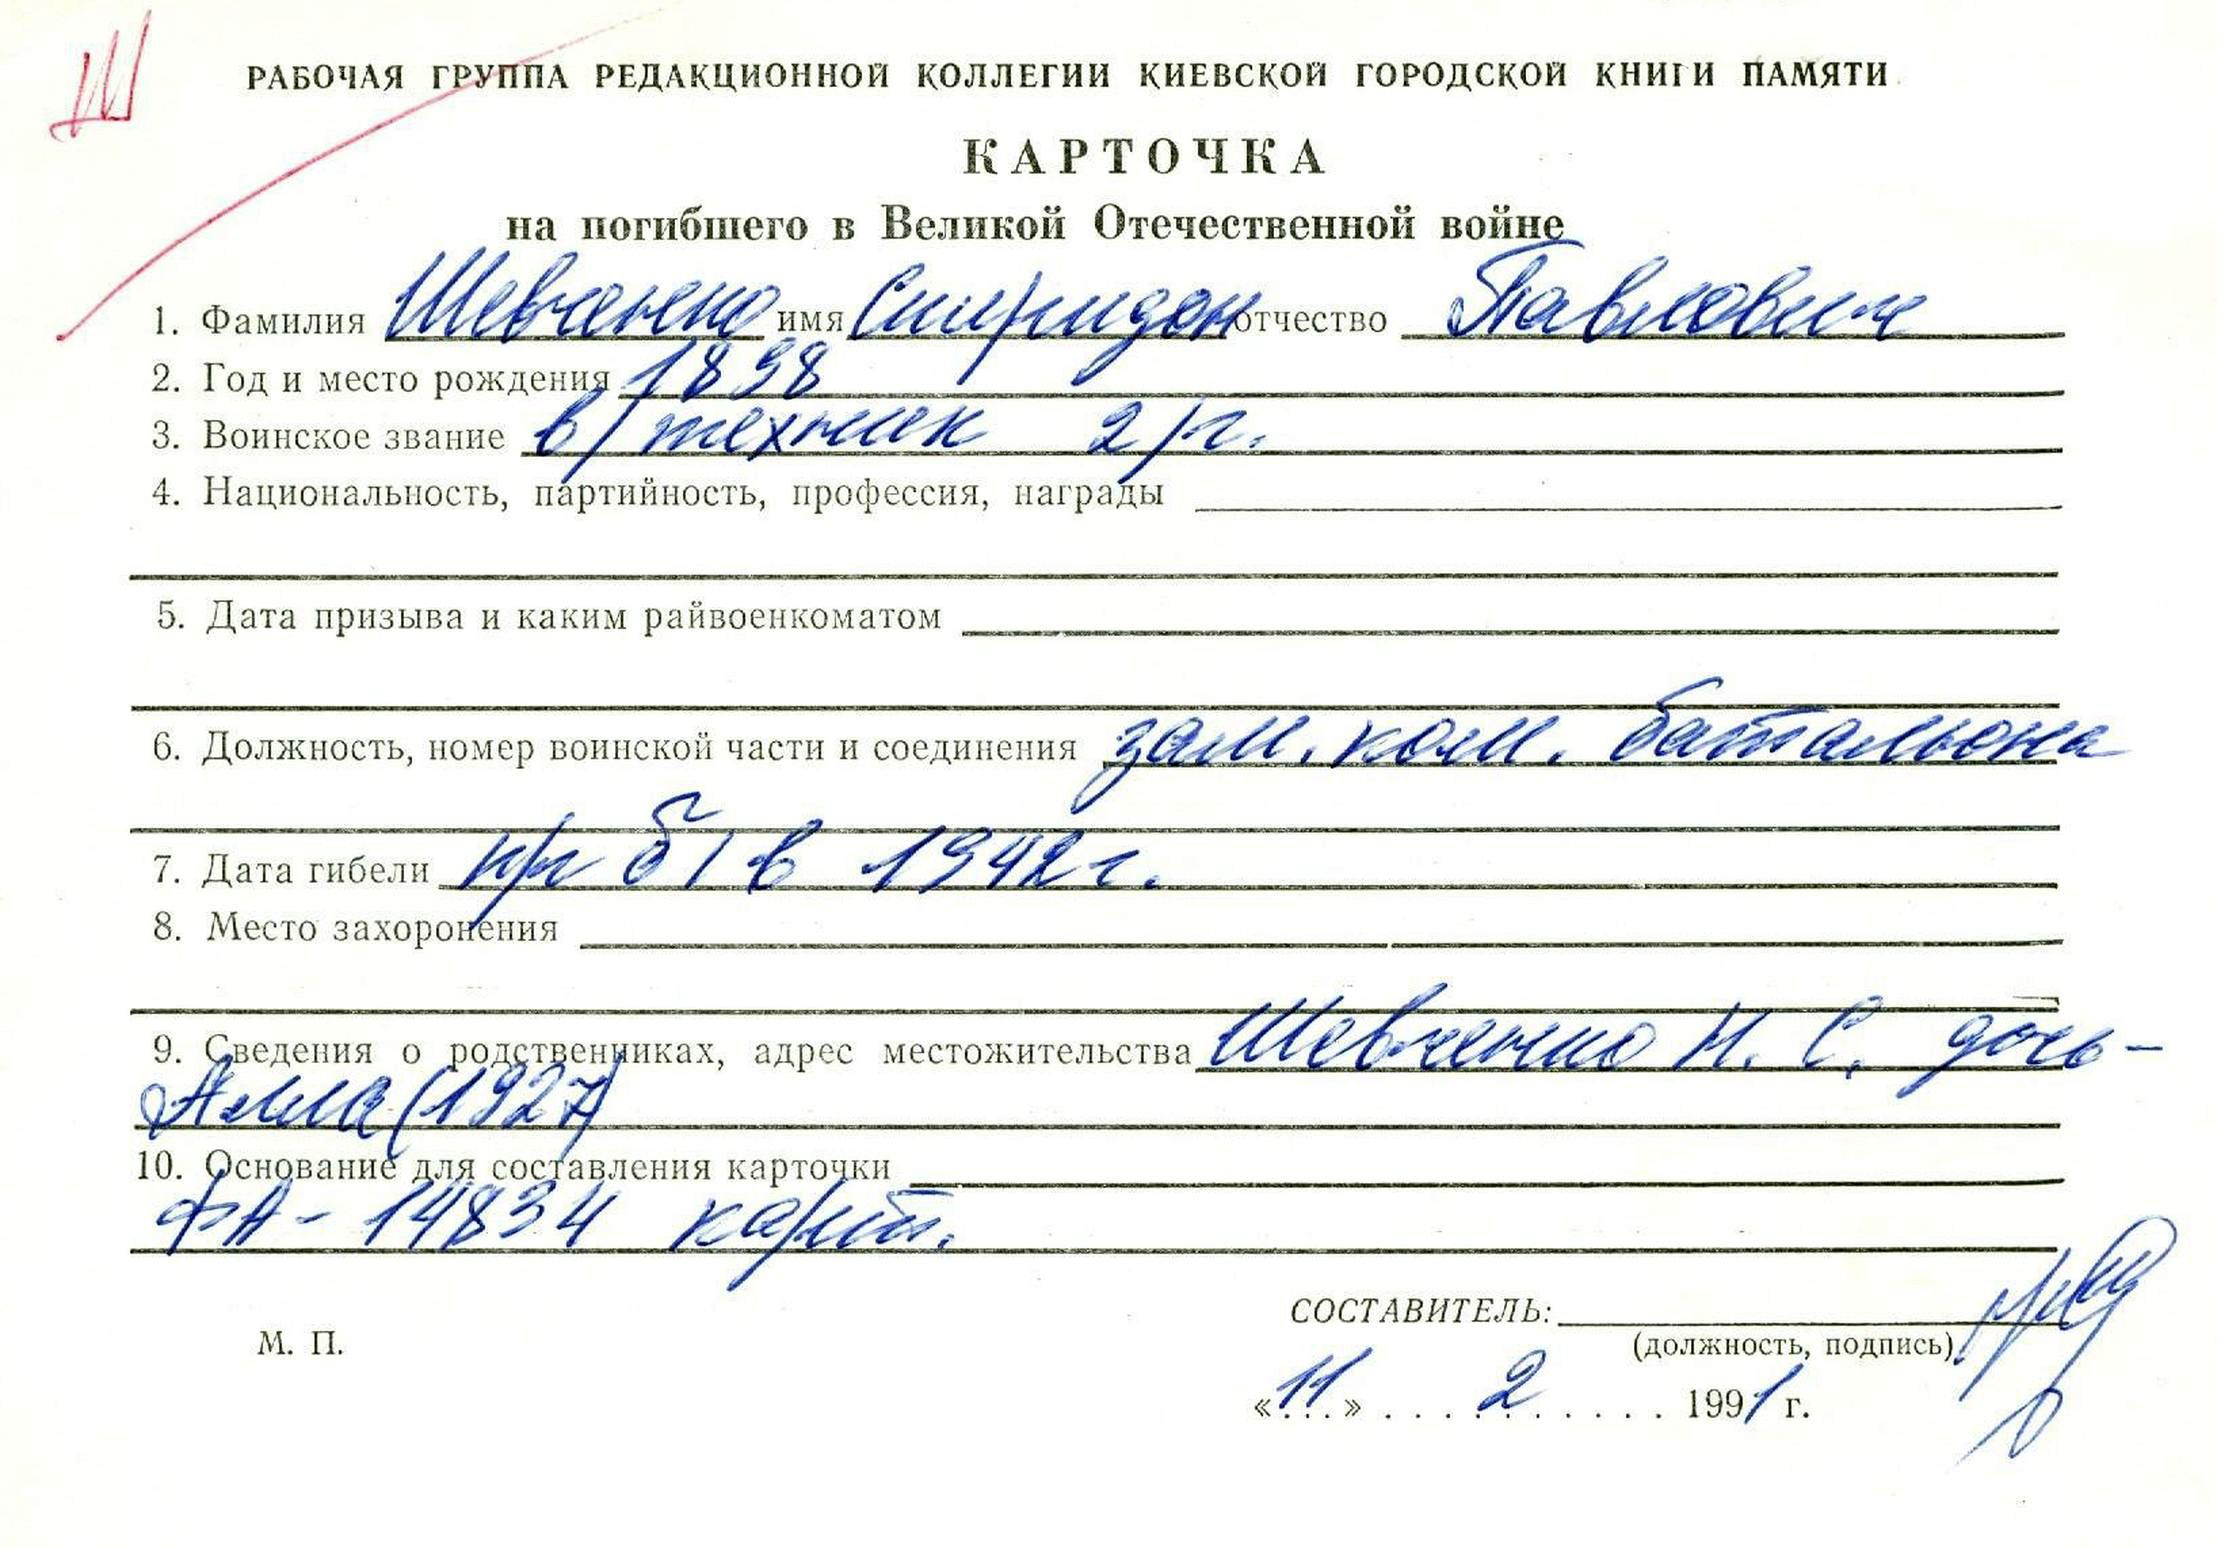 Ш
РАБОЧАЯ ГРУППА РЕДАКЦИОННОЙ КОЛЛЕГИИ КИЕВСКОЙ ГОРОДСКОЙ КНИГИ ПАМЯТИ
КАРТОЧКА
на погибшего в Великой Отечественной войне
1. Фамилия Шевченко имя Спиридон отчество Павлович
2. Год и место рождения 1898
3. Воинское звание в/техник 2/г.
4. Национальность, партийность, профессия, награды
5. Дата призыва и каким райвоенкоматом
6. Должность, номер воинской части и соединения зам. ком. батальона
7. Дата гибели пр б/в 1942г.
8. Место захоронения
9. Сведения о родственниках, адрес местожительства Шевченко Н. С. дочь-
Алла (1927)
10. Основание для составления карточки
ФА- 14834 карт.
СОСТАВИТЕЛЬ:
М. П.
(должность, подпись)
«11» 2 1991 г.